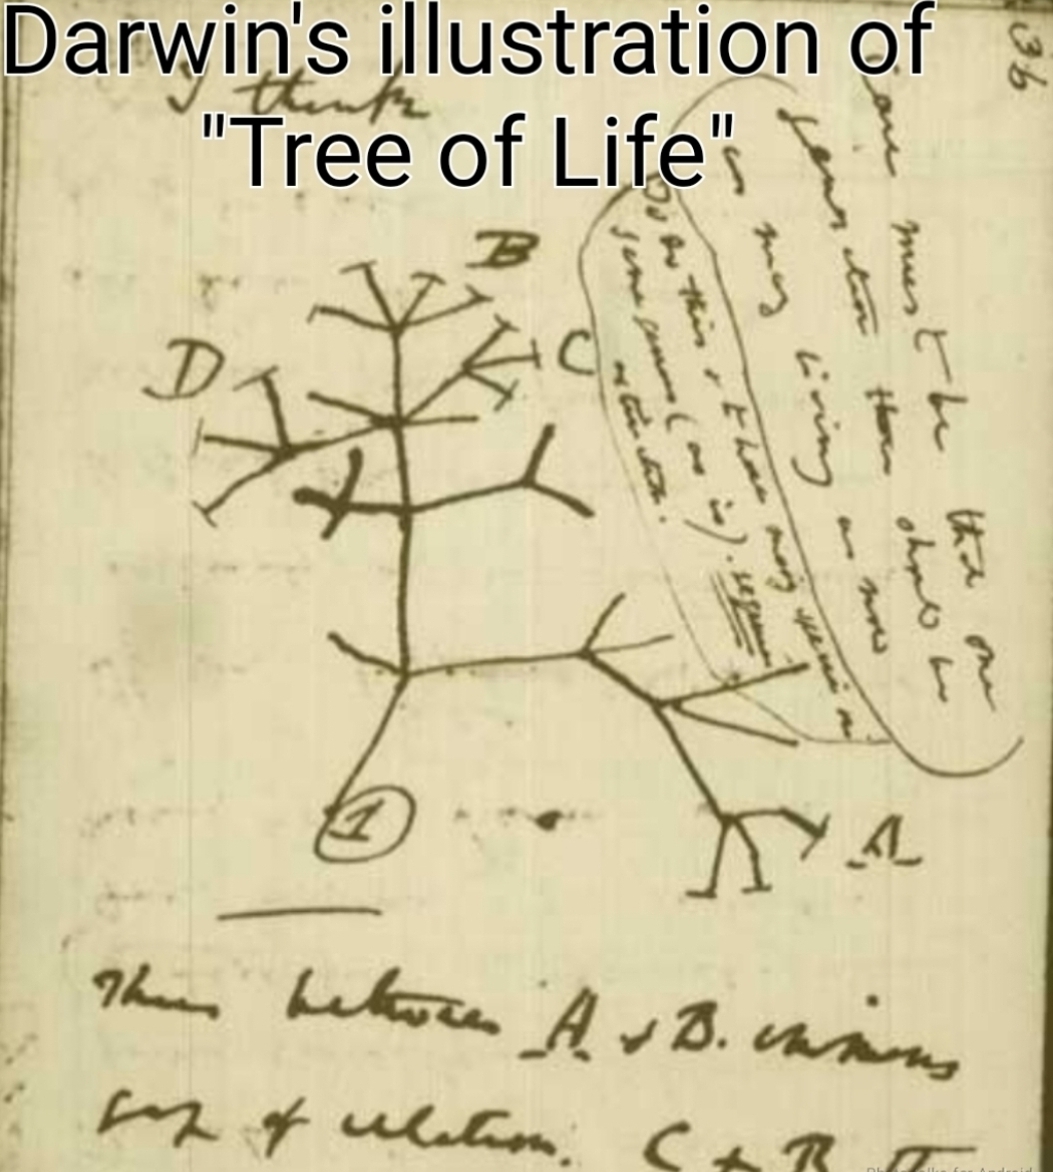 Darwin's illustration of
"Tree of Life"
36
I think
must be that one
generation then should be
as many living as now
To do this & to have many species in
same genus (as is). requires
extinction.
B
C
D
A
1
Thus between A & B. immense
gap of relation. C & B